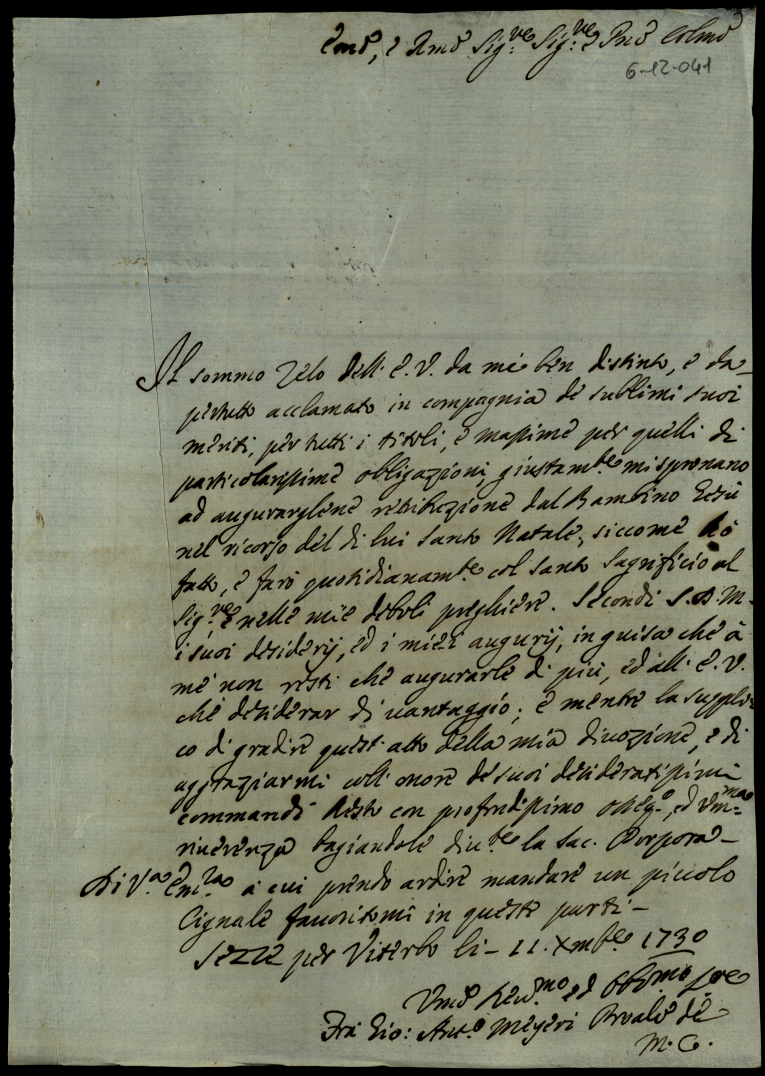 Em̃o, e Rm̃o Sig.re Sig.re Pñe Colmo
6-12-041
Il sommo Zelo dell' E. V. da me ben distinto, e da
pertutto acclamato in compagnia de sublimi suoi
meriti, per tutti i titoli, e massime per quelli di
particolarissime obligazioni, giustam.te mi spronano
ad augurarglene retribuzione dal Bambino Gesù
nel ricorso del di lui Santo Natale, siccome hò
fatto, e farò quotidianam.te col santo Sagrificio al
Sig.re, e nelle mie deboli preghiere. Secondi S. D. M.
i suoi desiderij, ed i miei augurij, in guisa che à
me non resti che augurarle di più, ed all' E. V.
che desiderar di vantaggio; e mentre la suppli-
co di gradire quest' atto della mia divozione, e di
aggraziarmi coll' onore de suoi desideratissimi
commandi resto con profondissimo osseq.o, ed Um.ma
riverenza bagiandole div.te la Sac. Porpora-
Di V.a Em.za a cui prendo ardire mandare un piccolo
Cignale favoritomi in queste parti-
Sezze per Viterbo li- 11. Xmbre 1730
Um̃o Rev.mo ed Obbmo Sre
Fra Gio: Ant.o Meyeri Pruale de
M. C.